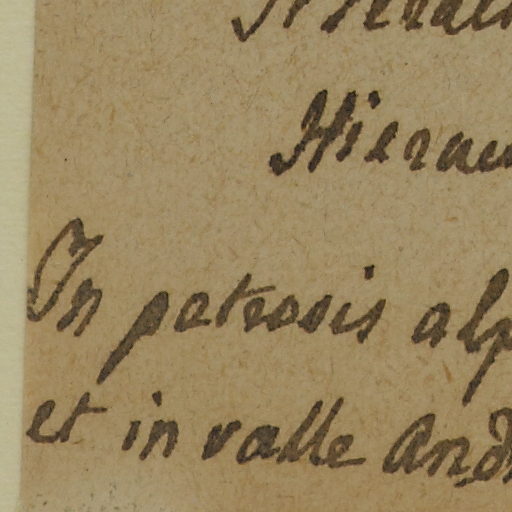 Hierac
Hierac
In petrosis alp
et in valle And